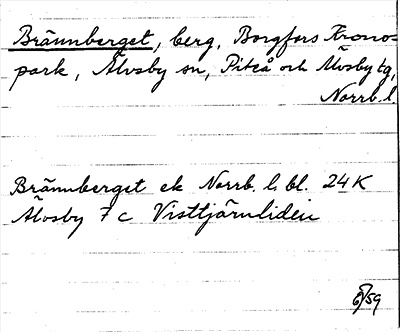 Brännberget, berg, Borgfors Krono-
park, Älvsby sn, Piteå och Älvsby tg,
Norrb. l.
Brännberget ek Norrb. l. bl. 24 K
Älvsby 7 c Visttjärnliden
6/59